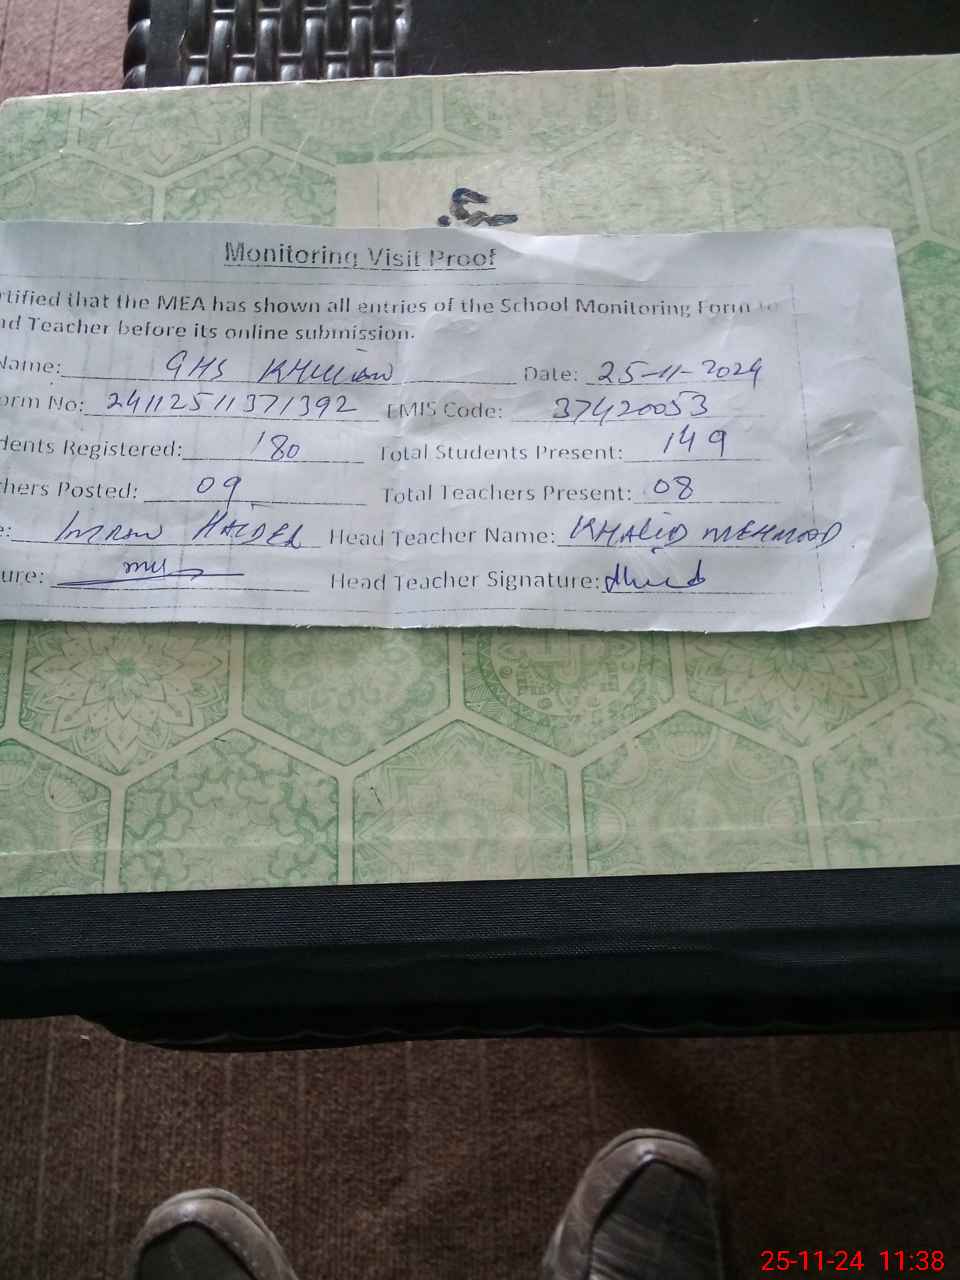 Monitoring Visit Proof
rtified that the MEA has shown all entries of the School Monitoring Form to
nd Teacher before its online submission.
Name: GHS Date: 25-11-2024
orm No: 24112511371392 EMIS Code: 37420053
dents Registered: 180 Total Students Present: 149
chers Posted: 09 Total Teachers Present: 08
e: IMRAN HAIDER Head Teacher Name: KHALID MEHMOOD
ure: Head Teacher Signature:
25-11-24 11:38